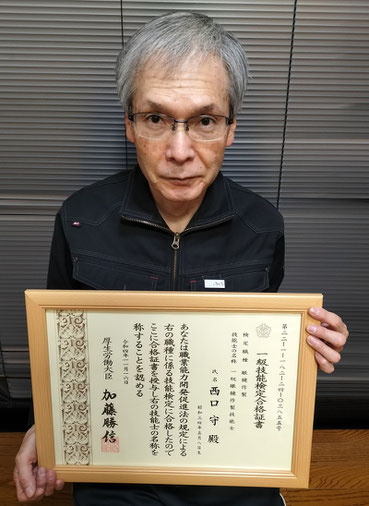 第二二-一-一八二-三四-〇三八五五号
一級技能検定合格証書
検定職種
技能士の名称
氏名 西口 守 殿
昭和三四年五月八日生
あなたは職業能力開発促進法の規定による
右の職種に係る技能検定に合格したので
ここに合格証書を授与し右の技能士の名称を
称することを認める
令和四年一一月一六日
厚生労働大臣 加藤勝信